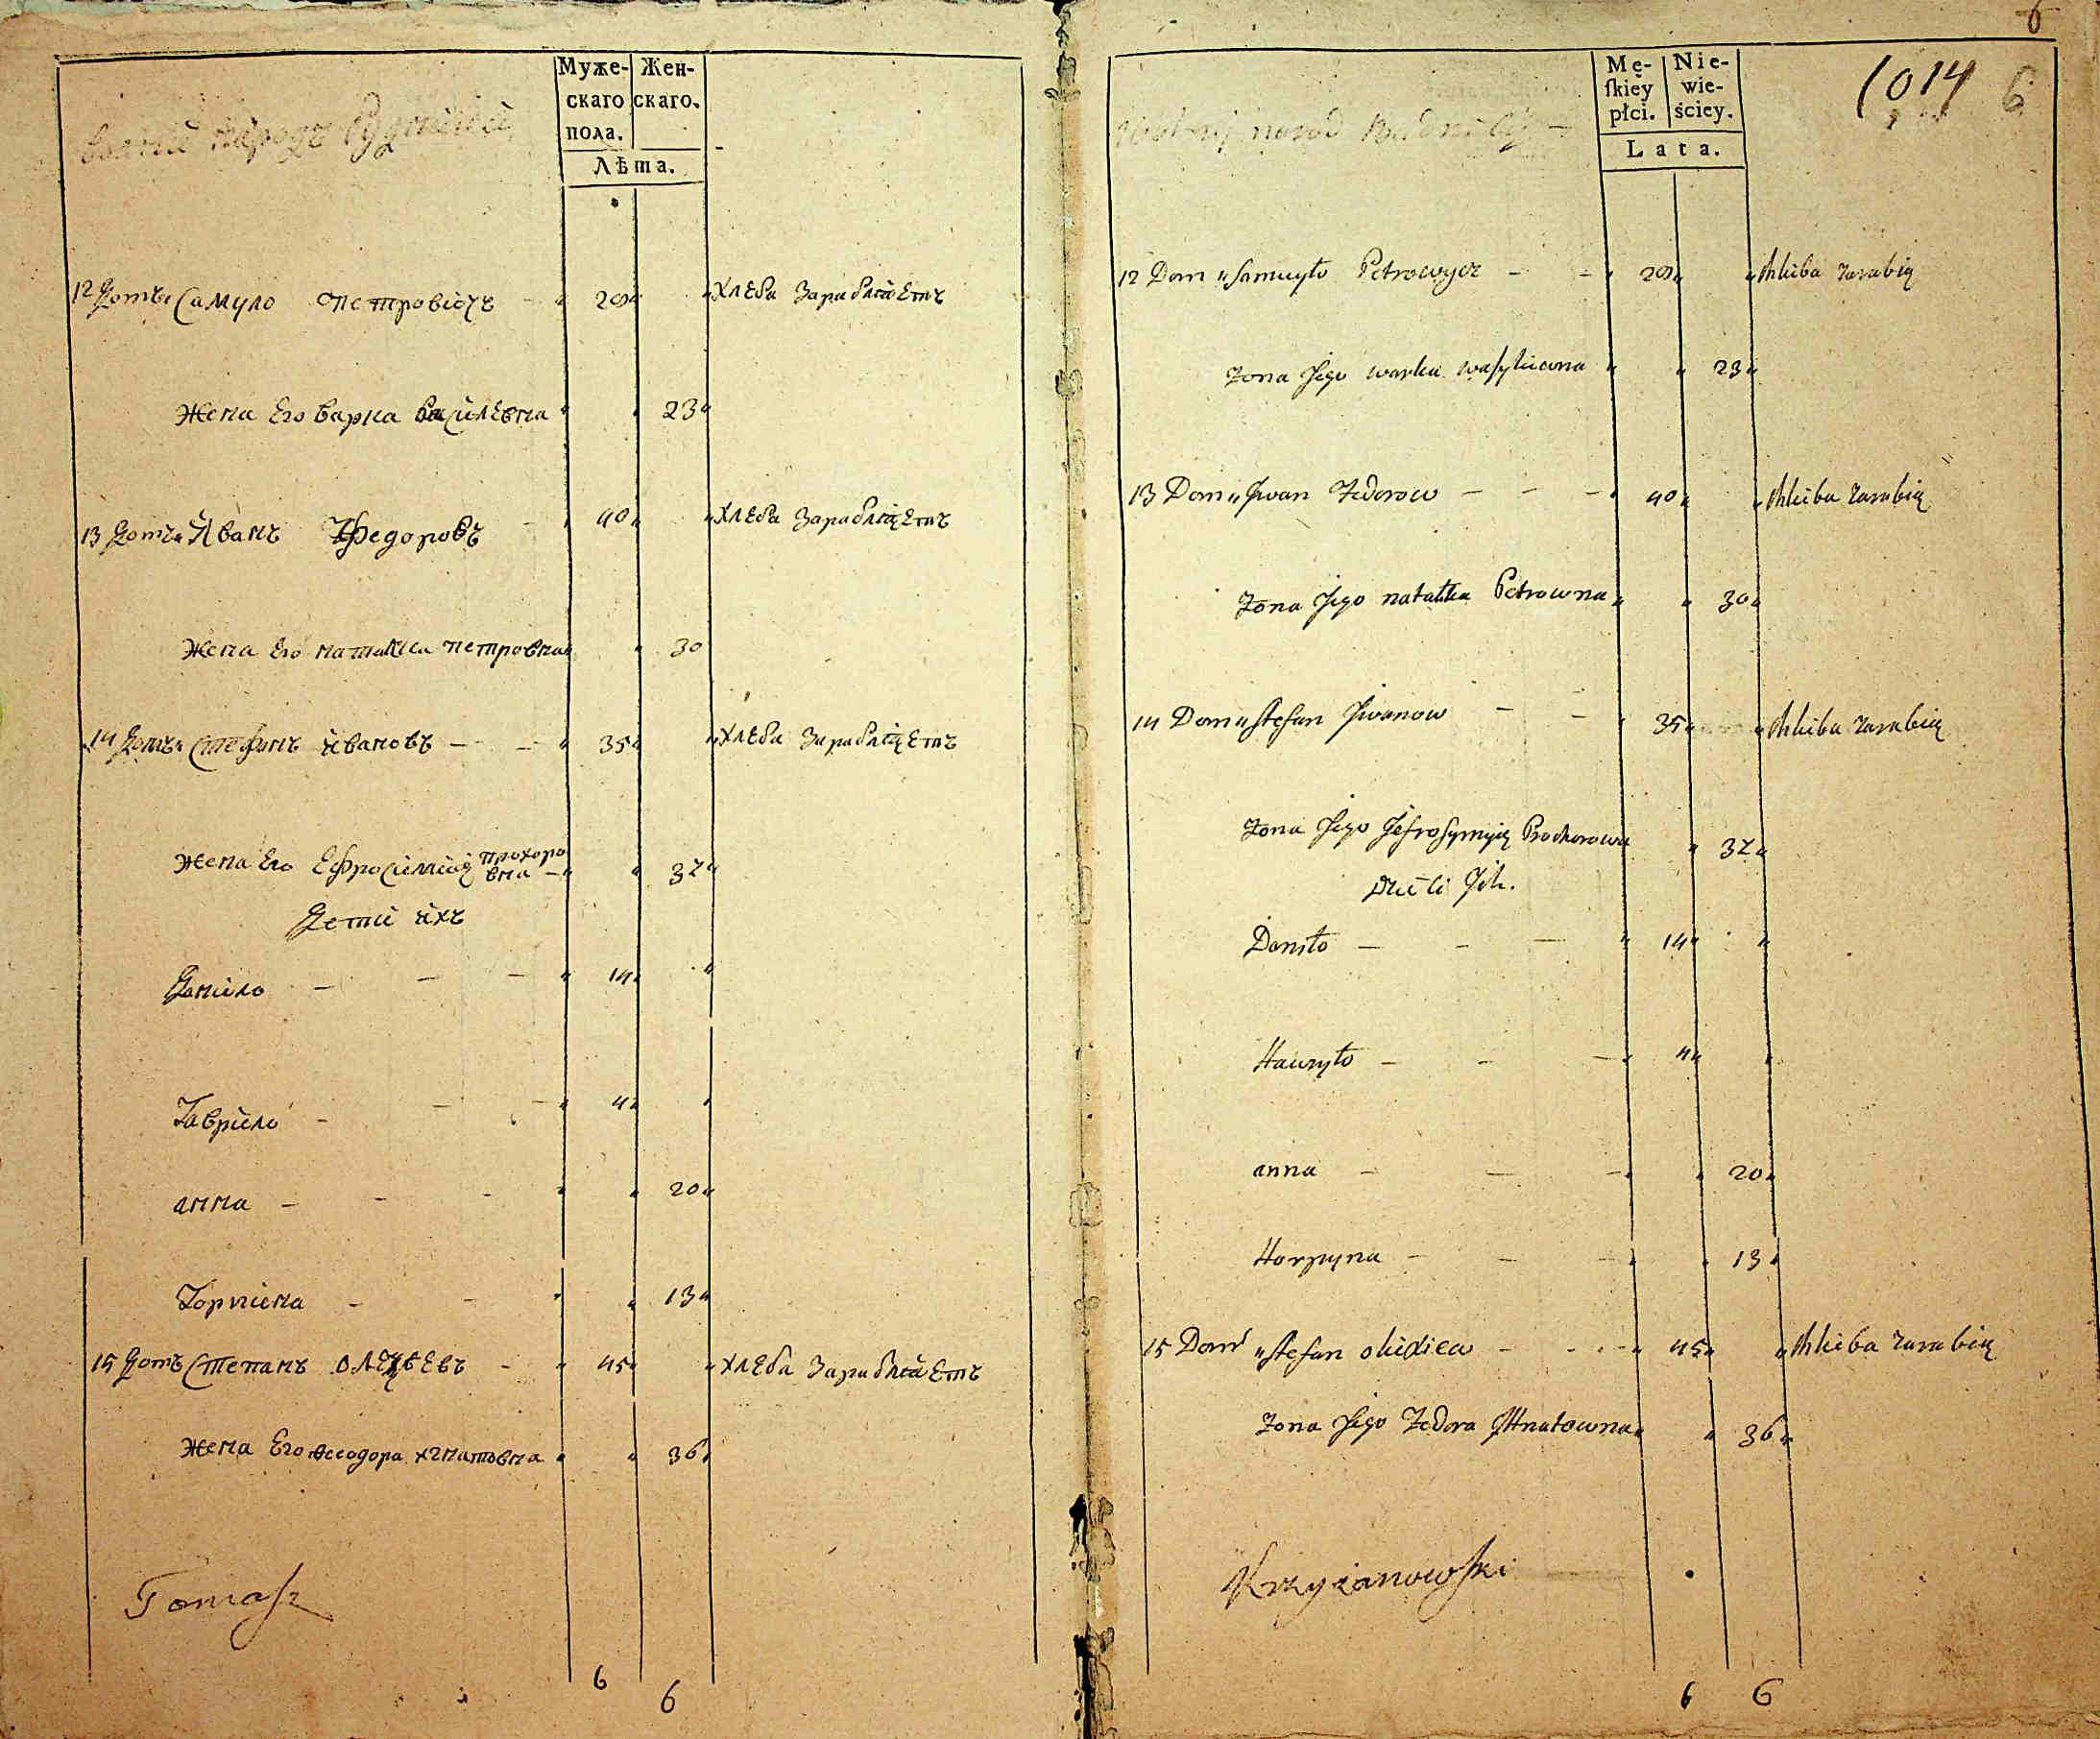 Муже-
скаго
пола.
Жен-
скаго.
Лѣта.
12 Домъ Самуло Петровичъ — " 20 " " Хлеба Зарабляетъ
Жена Его Варка Василевна " " 23 "
13 Домъ " Иванъ Федоровъ — " 40 " " Хлеба Зарабляетъ
Жена Его Наталка Петровна " " 30
14 Домъ " Стефанъ Ивановъ — — " 35 " " Хлеба Зарабляетъ
Жена Его Ефросиния Прохоро
вна — " " 37 "
Дети ихъ
Данило — — — " 14 " "
Гаврило — — — " 4 "
анна — — — " " 20 "
Горпина — — " " 13 "
15 Домъ Степанъ — " 45 " " Хлеба Зарабляетъ
Жена Его Феодора " " 36 "
Tomasz
6 6
6
Mę-
skiey
płci.
Nie-
wie-
ściey.
Lata.
1014 6
12 Dom " Samuyło Petrowycz — — " 20 " " Chliba zarabia
Żona Jego warka wasyliewna " " 23 "
13 Dom " Jwan Fedorow — — — " 40 " " Chliba zarabia
Żona Jego natalka Petrowna " " 30 "
14 Dom " Stefan Jwanow — — " 35 " " Chliba zarabia
Żona Jego Jefrosynyia Prochorowna " 37 "
Dzieci Jch.
Daniło — — — " 14 " "
Hawryło — — — " 4 " "
anna — — — " " 20 "
Horpyna — — — " " 13 "
15 Dom " Stefan — — " 45 " " Chliba zarabia
Żona Jego Fedora Jhnatowna " " 36 "
Krzyżanowski
6 6